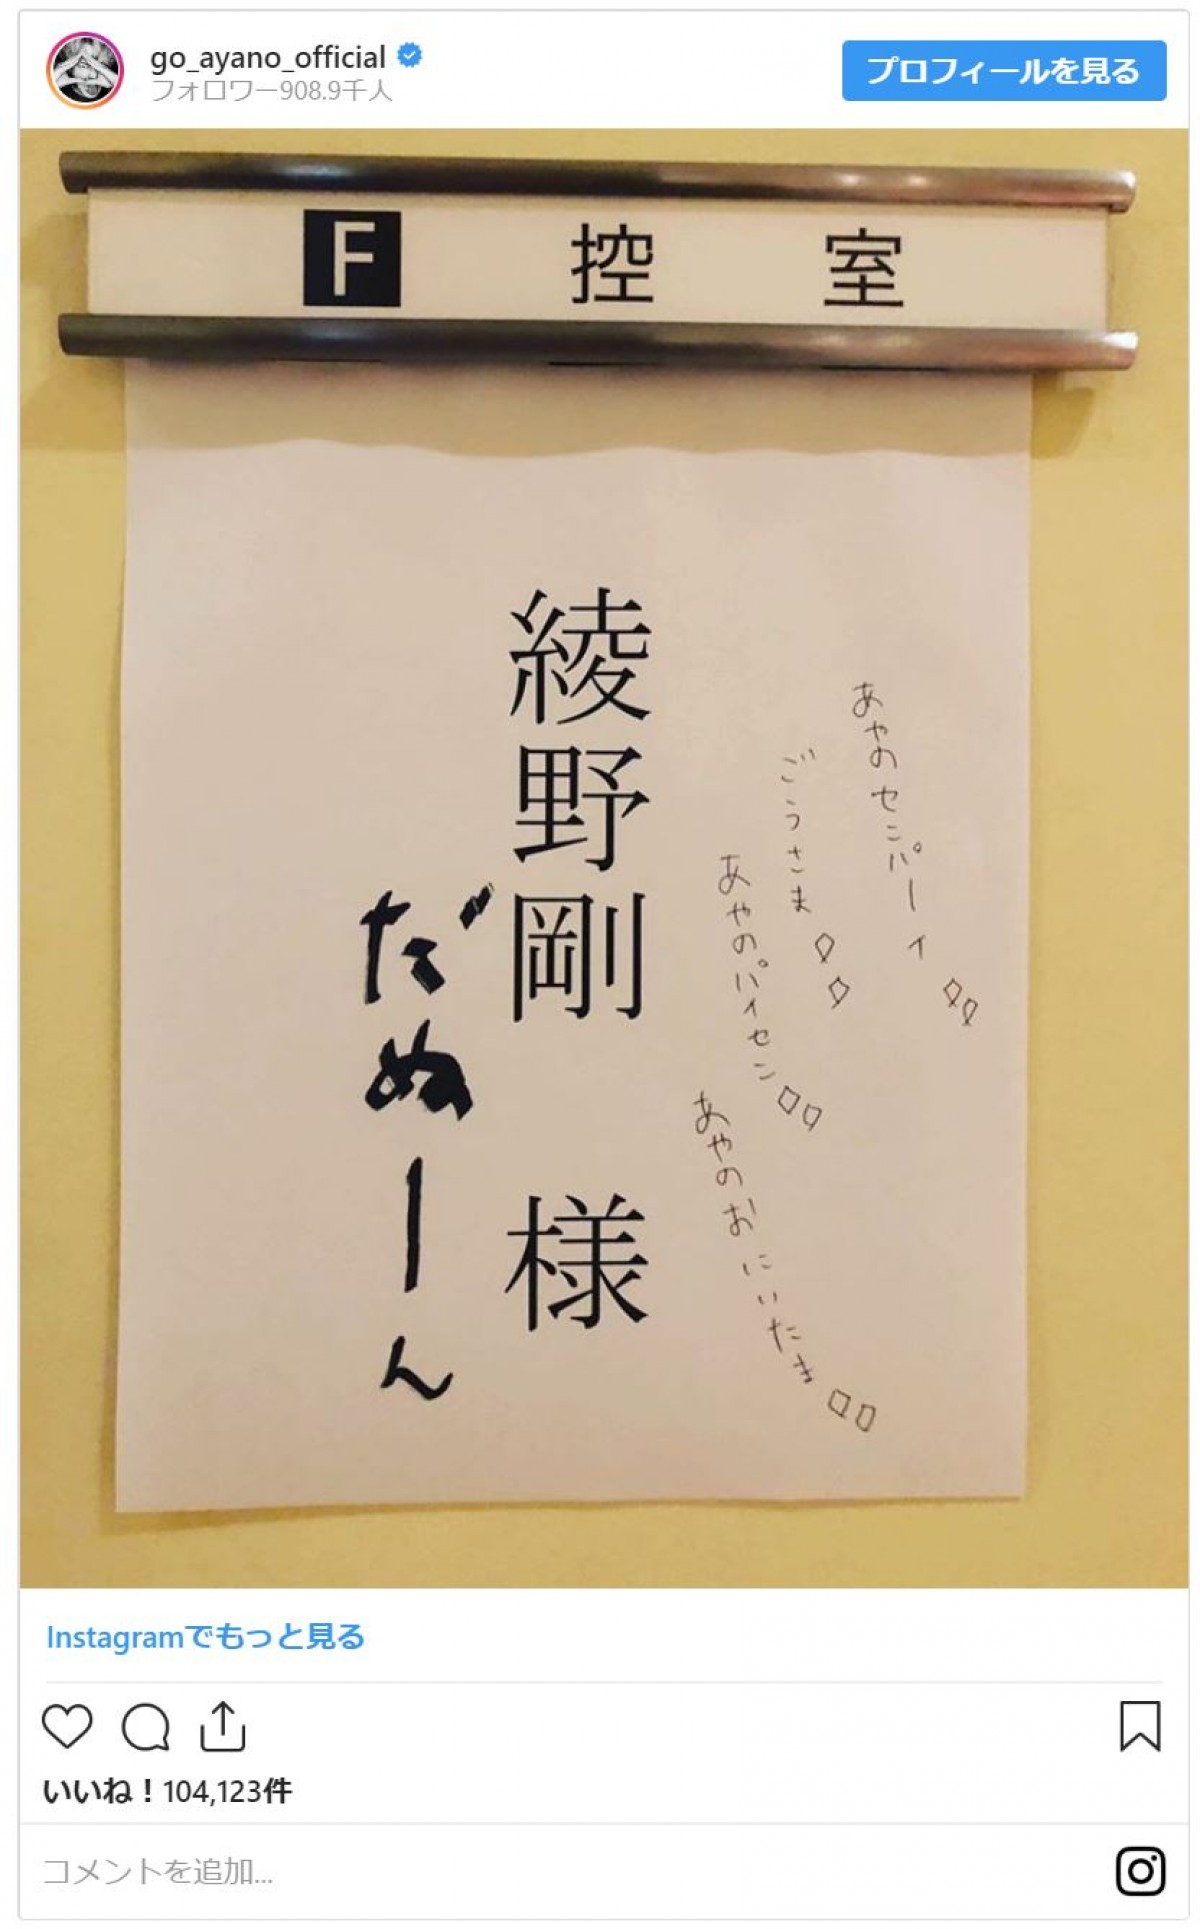 go_ayano_official
フォロワー908.9千人
プロフィールを見る
F 控 室
あやのセンパーイ
ごうさま
あやのパイセン
あやのおにいたま
綾野剛 様
だぬーん
Instagramでもっと見る
いいね！104,123件
コメントを追加...